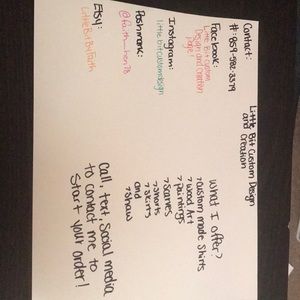 Little Bit Custom Design
and Creation
Contact:
#: 859-582-3379
Facebook:
Little Bit Custom
Design and Creation
page!
Instagram:
littlebitcustomdesign
Poshmark:
@faith_hen78
Etsy:
LittleBitByFaith
What I offer?
→Custom made Shirts
→Wood Art
→paintings
→Scarves
→Shorts
→Skirts
and
→Shaw
Call, text, Social media
to contact me to
Start your order!